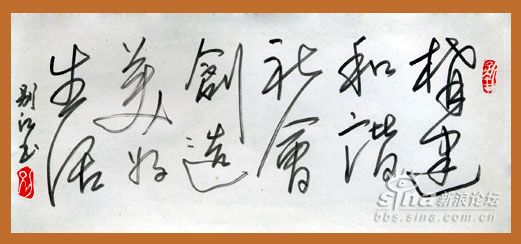 構建
和諧
社會
創造
美好
生活
sina 新浪论坛
bbs.sina.com.cn